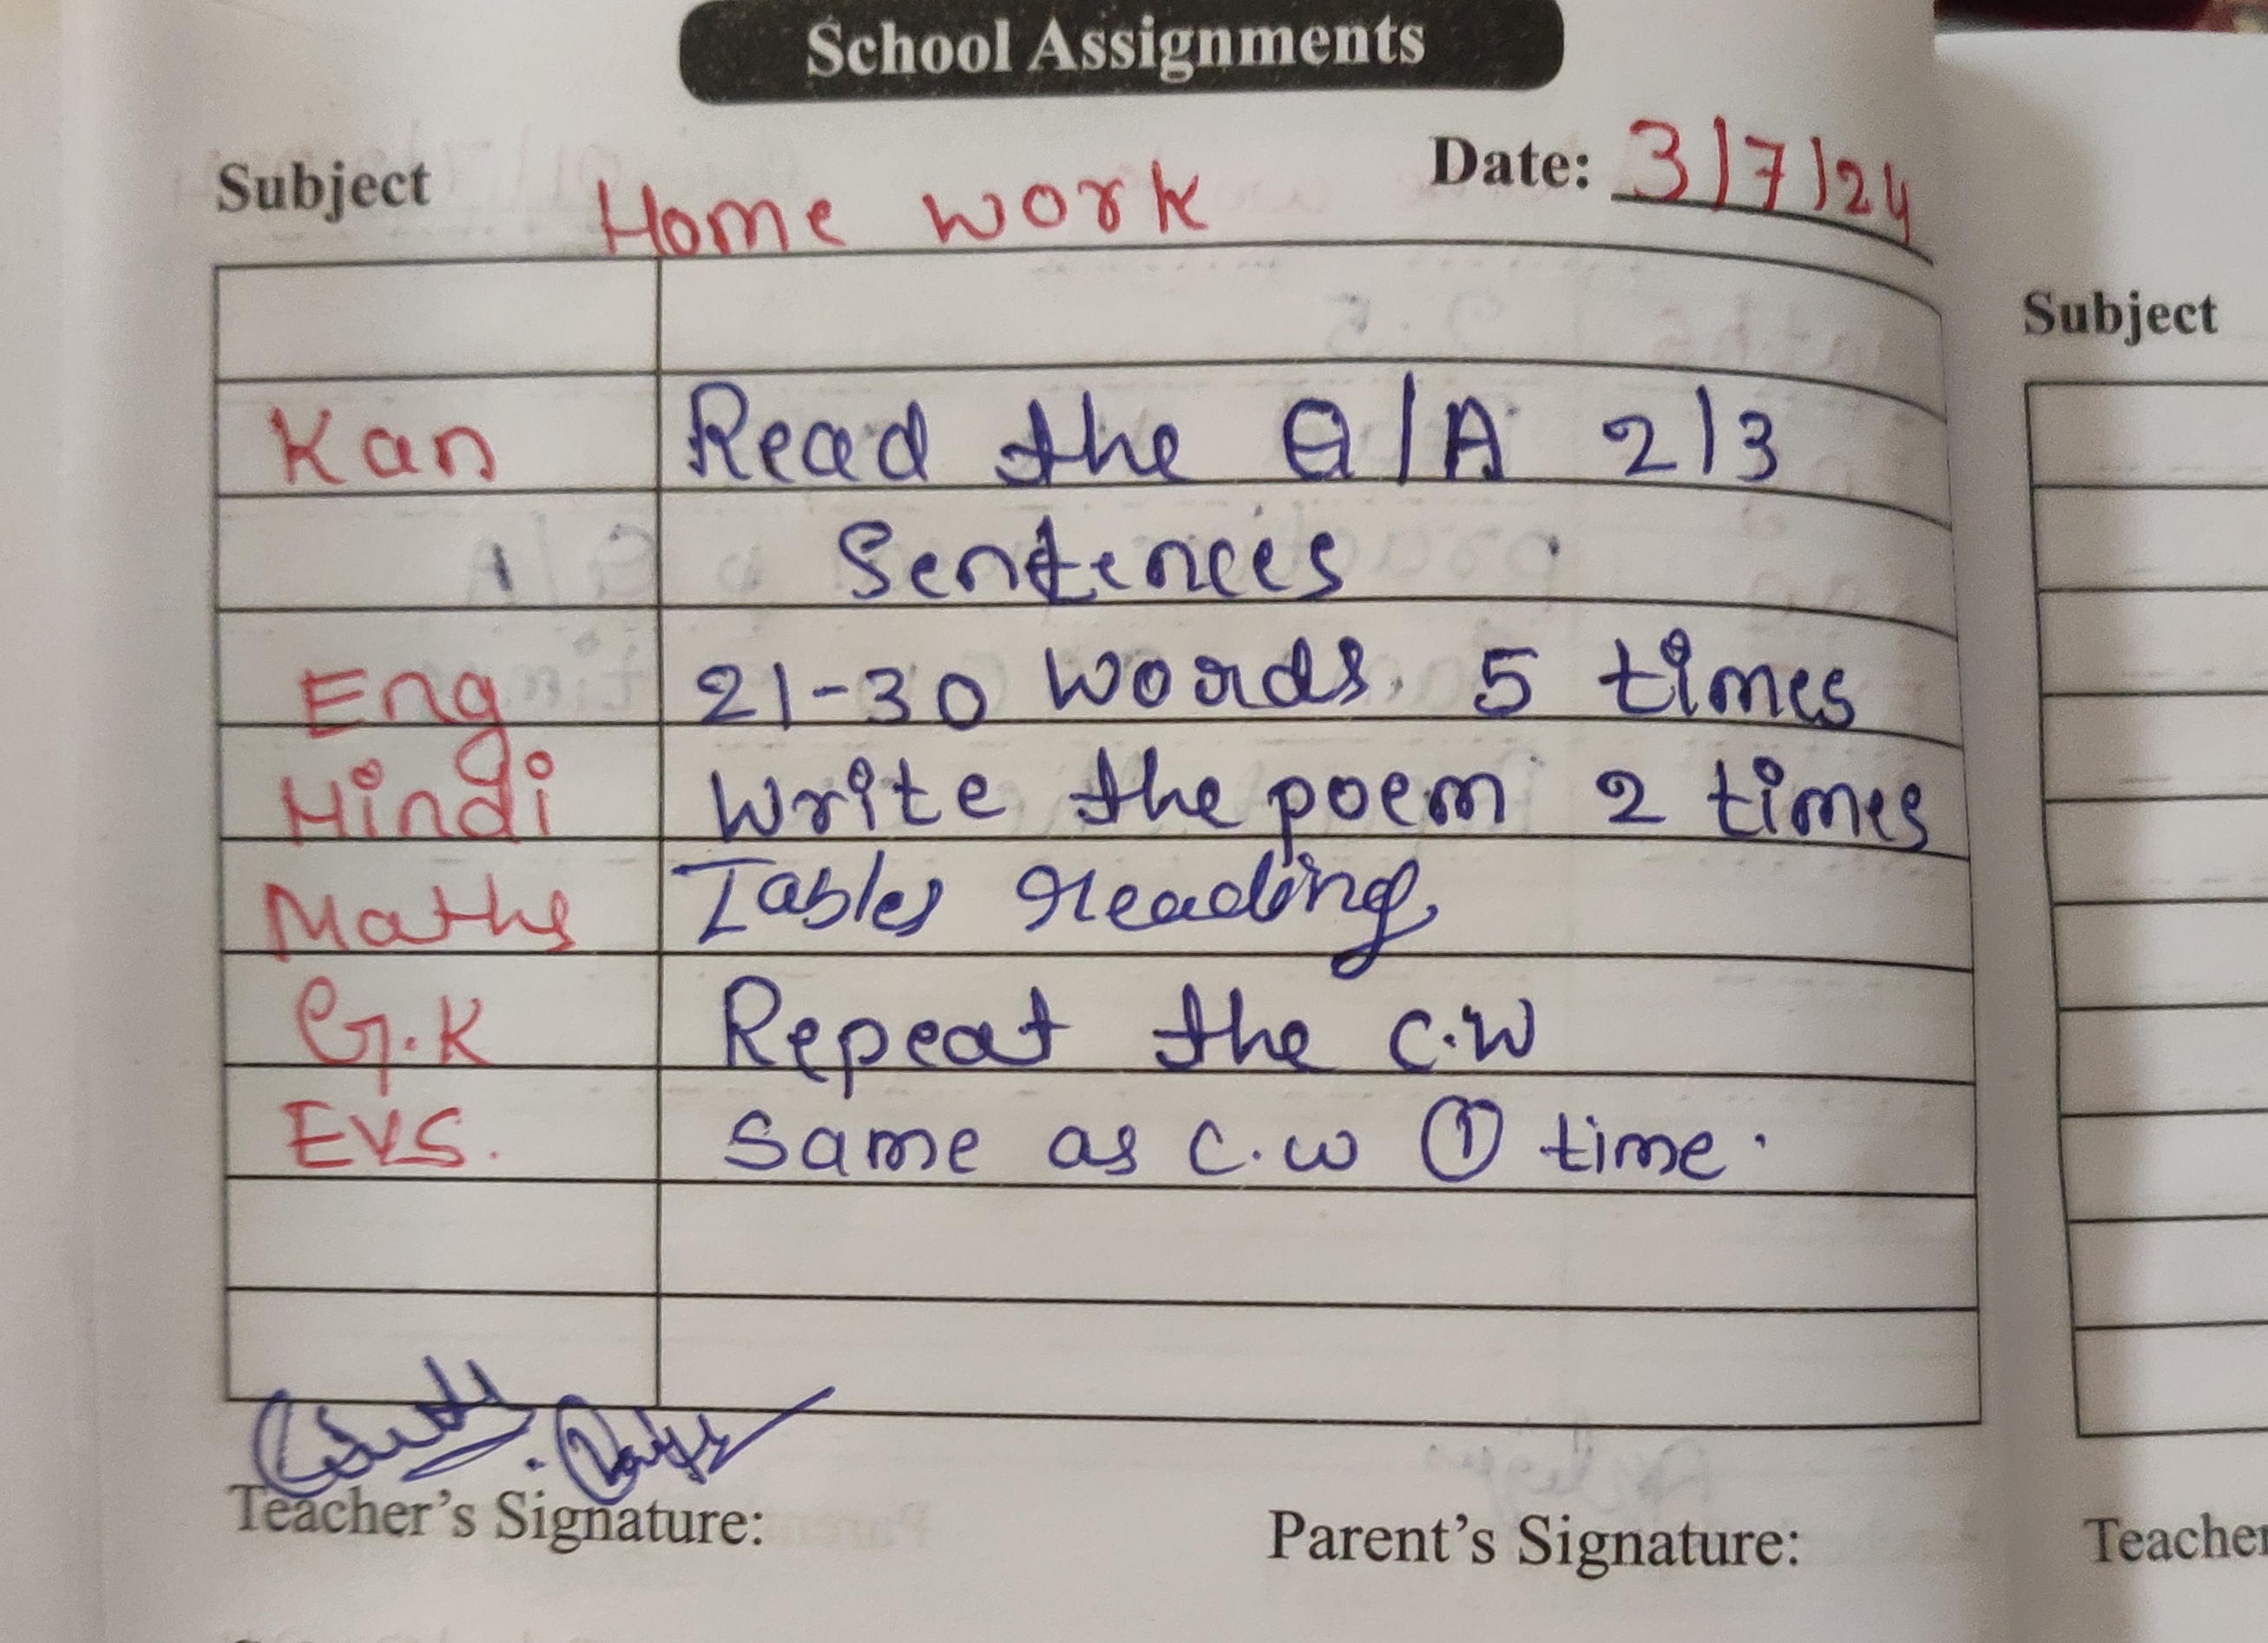 School Assignments
Subject Home work Date: 3/7/24
Kan Read the Q/A 2/3
Sentences
Eng 21-30 words. 5 times
Hindi Write the poem 2 times
Maths Tables reading
G.K Repeat the C.W
EVS. Same as C.W 1 time.
Teacher's Signature: Parent's Signature:
Subject
Teacher